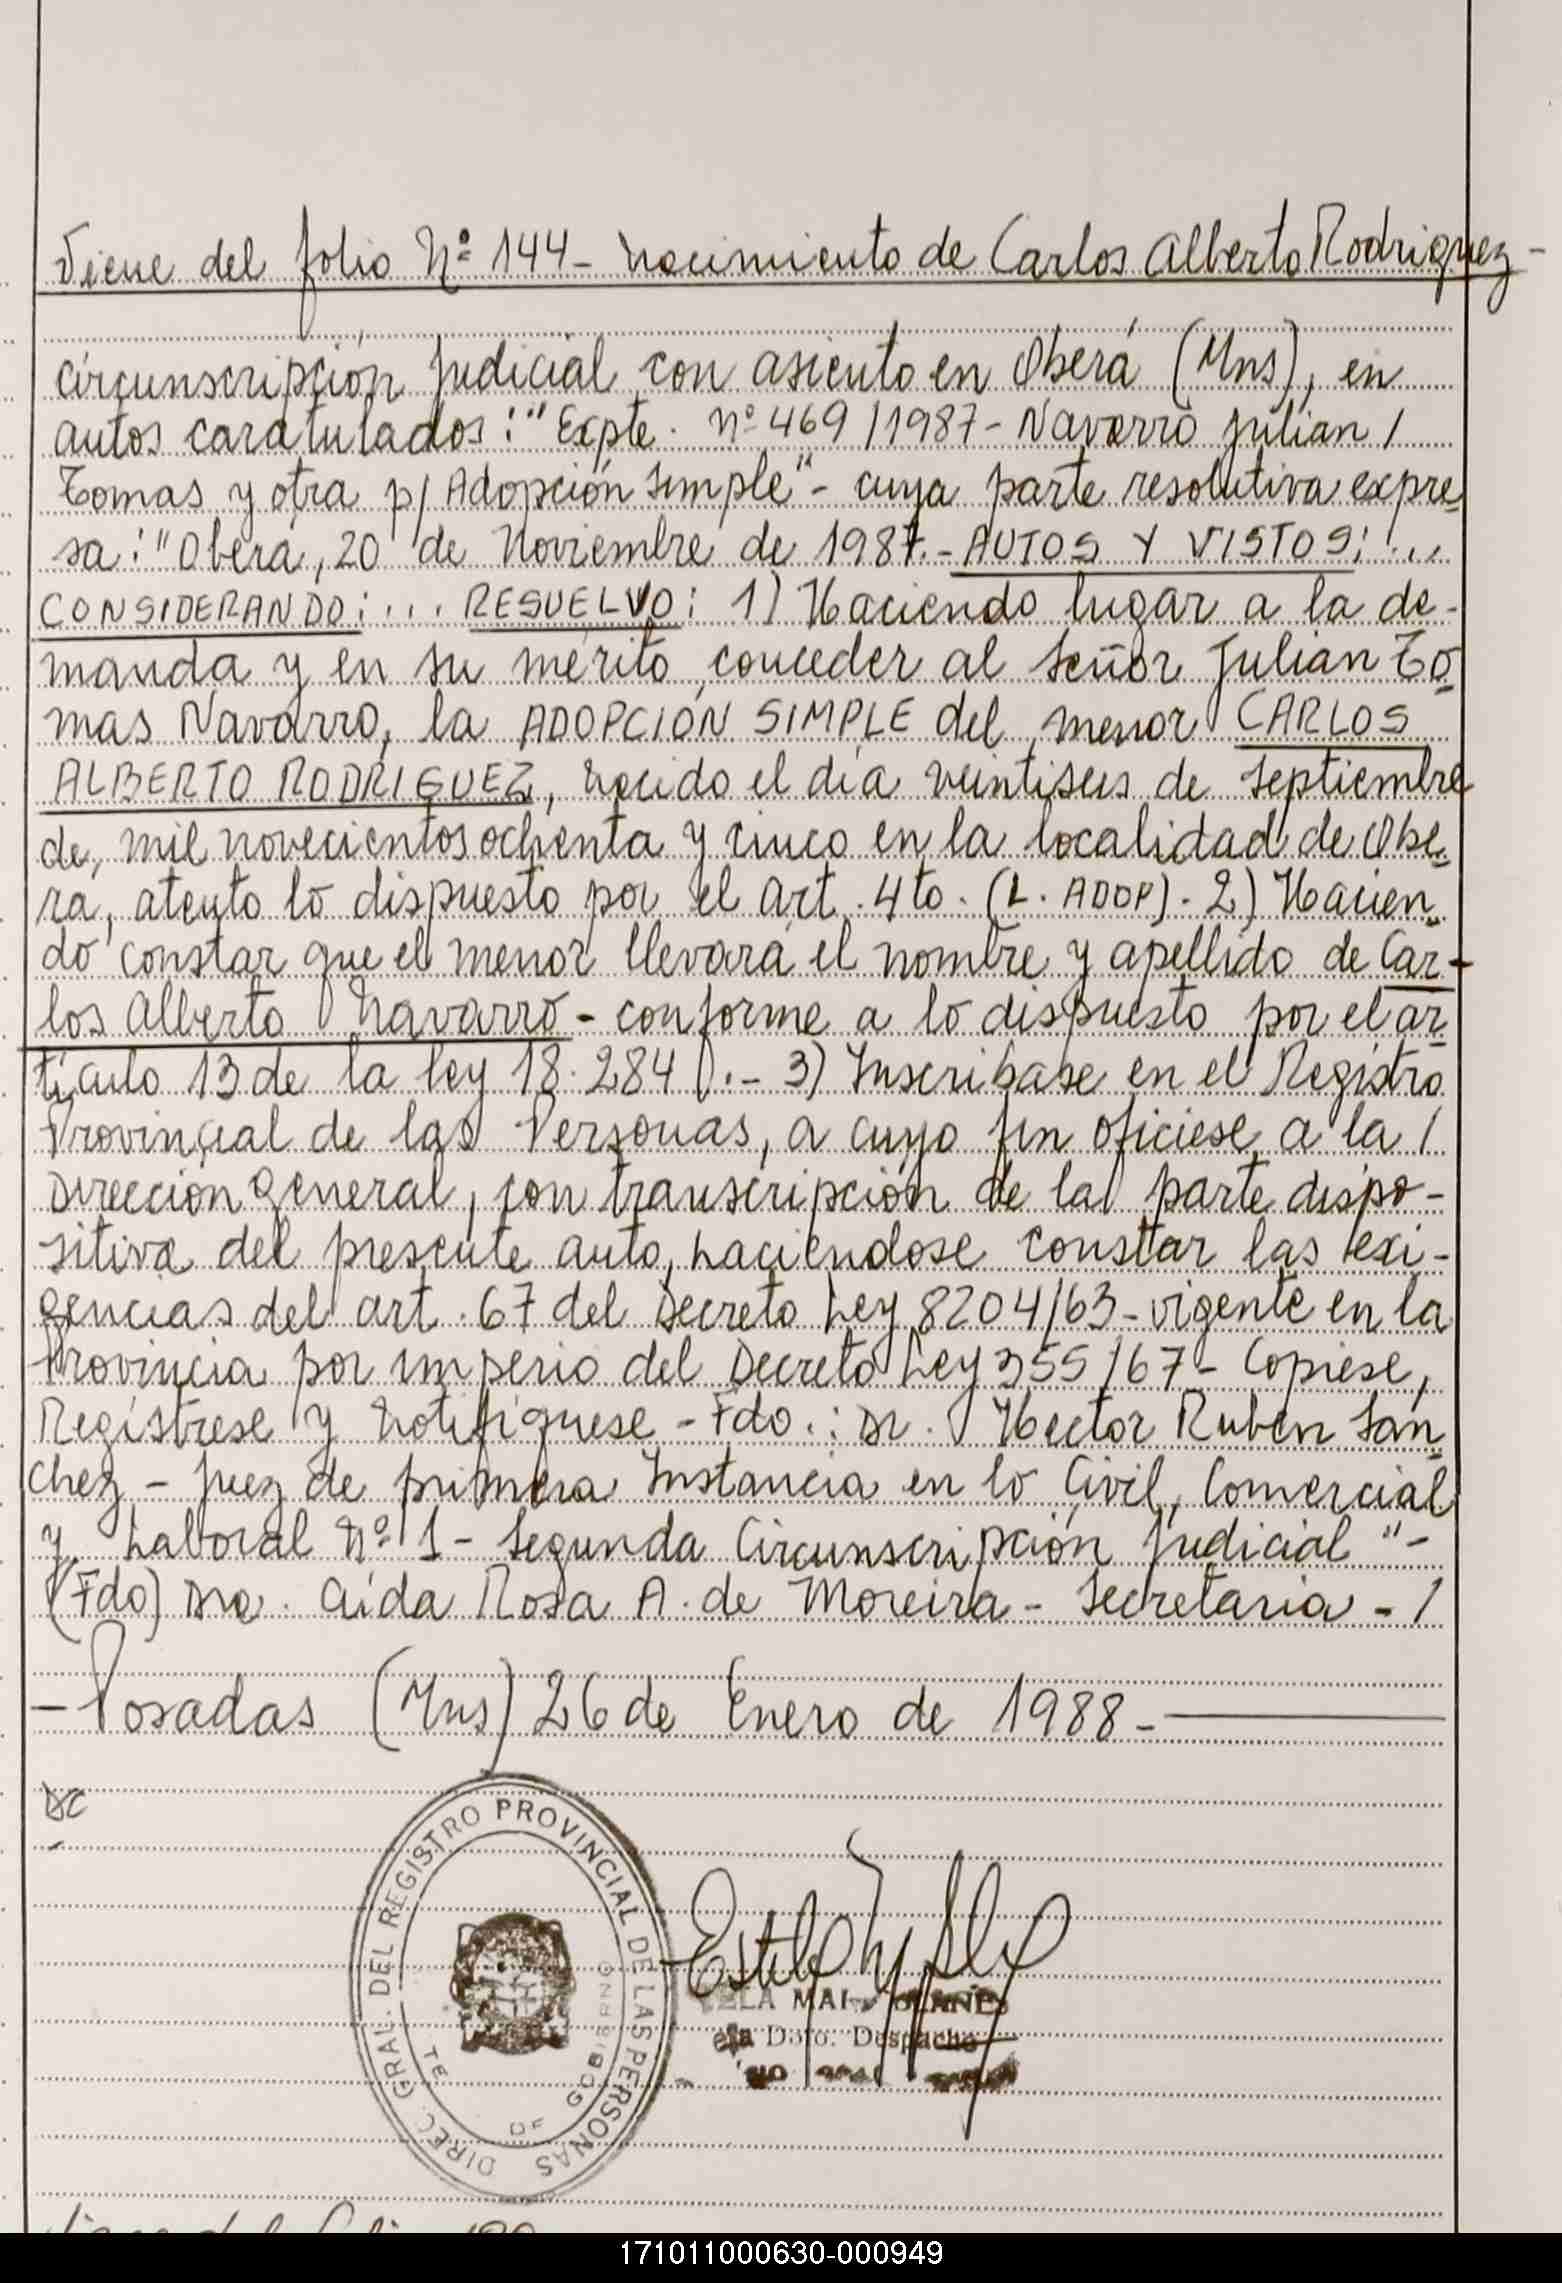 Viene del folio Nº 144 - Nacimiento de Carlos Alberto Rodriguez -
circunscripción judicial con asiento en Oberá (Mns), en
autos caratulados: "Expte. nº 469/1987 - Navarro Julian /
Tomas y otra p/ Adopción Simple" - cuya parte resolutiva expre-
sa: "Oberá, 20 de Noviembre de 1987.- AUTOS Y VISTOS: ...
CONSIDERANDO: ... RESUELVO: 1) Haciendo lugar a la de-
manda y en su mérito, conceder al Señor Julian To-
mas Navarro, la ADOPCIÓN SIMPLE del menor CARLOS
ALBERTO RODRIGUEZ, nacido el día veintiseis de Septiembre
de, mil novecientos ochenta y cinco en la localidad de Obe-
ra, atento lo dispuesto por el art. 4to. (L. ADOP). 2) Hacien-
do constar que el menor llevará el nombre y apellido de Car-
los Alberto Navarro - conforme a lo dispuesto por el ar-
tículo 13 de la ley 18.284 .- 3) Inscribase en el Registro
Provincial de las Personas, a cuyo fin ofíciese a la /
Dirección General, con transcripción de la parte dispo-
sitiva del presente auto, haciendose constar las exi-
gencias del art. 67 del Decreto Ley 8204/63 - vigente en la
Provincia por imperio del Decreto Ley 355/67 - Copiese,
Regístrese y Notifíquese - Fdo.: Dr. Hector Ruben San-
chez - Juez de primera Instancia en lo Civil, Comercial
y Laboral Nº 1 - Segunda Circunscripción Judicial" -
(Fdo) Dra. Aída Rosa A. de Moreira - Secretaria - /
- Posadas (Mns) 26 de Enero de 1988 -
DIREC. GRAL. DEL REGISTRO PROVINCIAL DE LAS PERSONAS
DE GOBIERNO
Dpto. Despacho
171011000630-000949